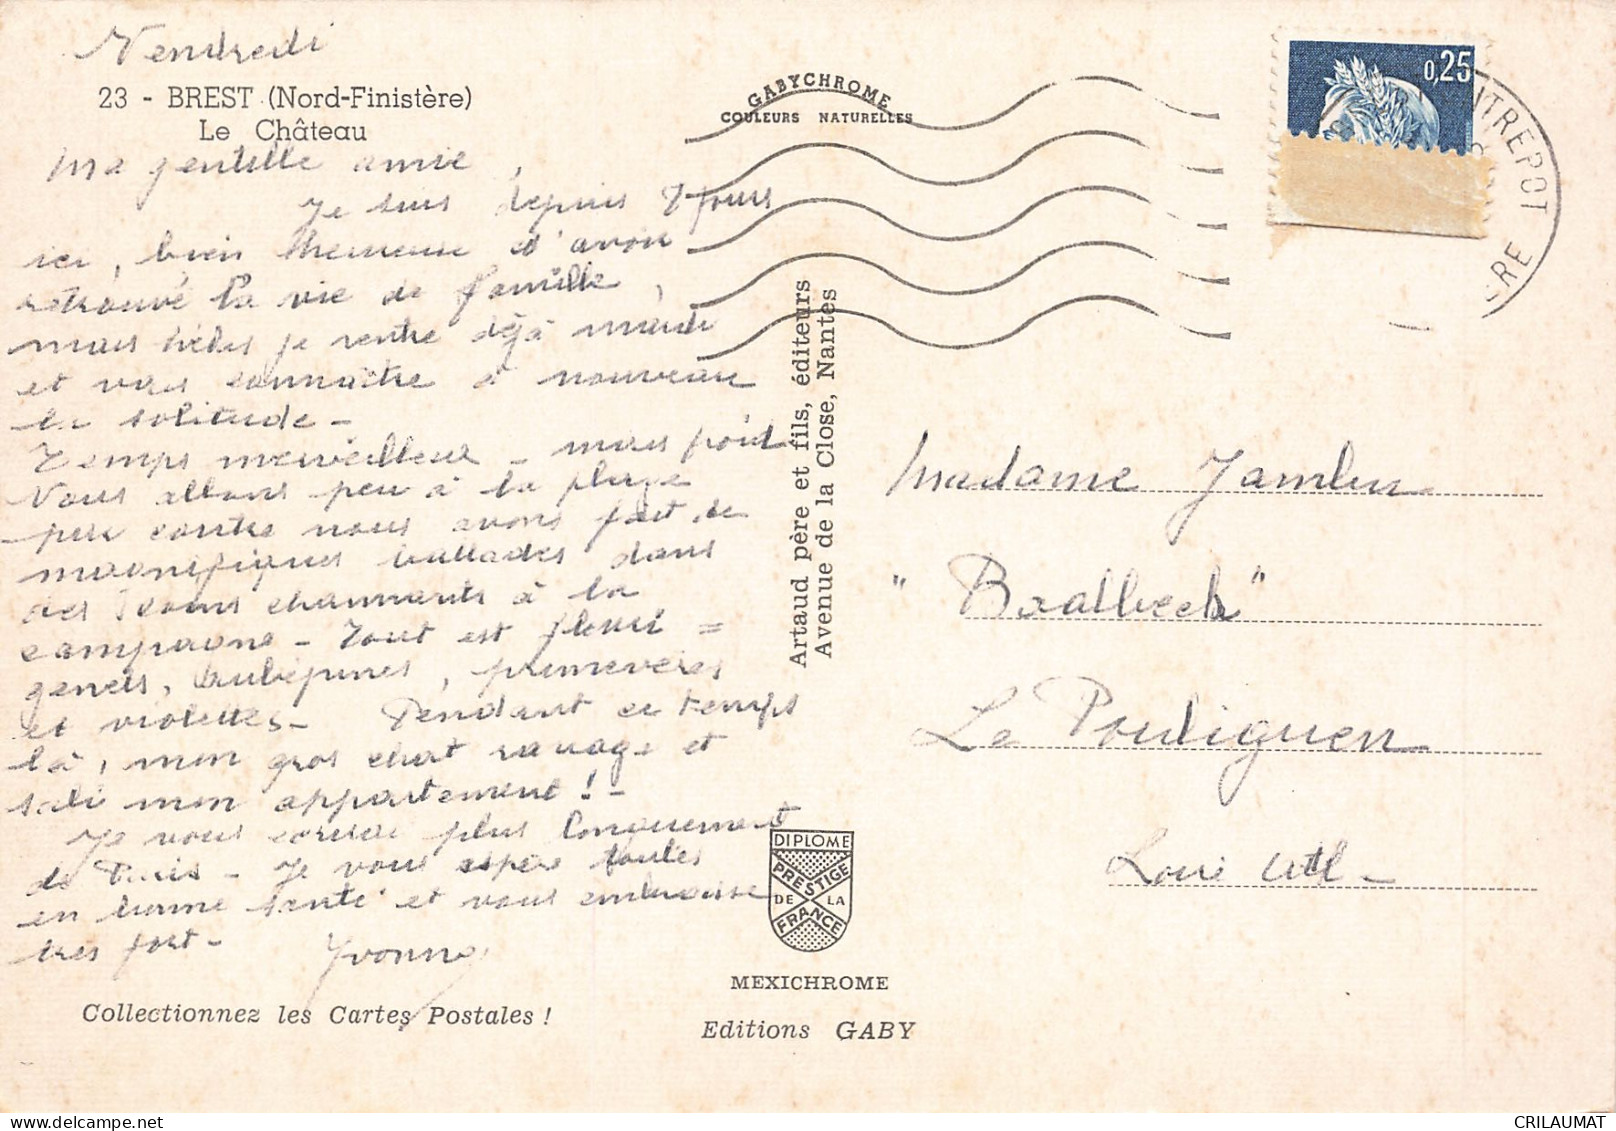 Vendredi
23 - BREST (Nord-Finistère)
Le Château
Ma gentille amie,
Je suis depuis 8 jours
ici, bien heureuse d'avoir
retrouvé la vie de famille,
mais hélas je rentre déjà mardi
et vais connaître à nouveau
la solitude -
Temps merveilleux - mais froid
Nous allons peu à la plage
par contre nous avons fait de
magnifiques ballades dans
des coins charmants à la
campagne - Tout est fleuri =
genets, aubépines, primevères
et violettes - Pendant ce temps
là, mon gros chat ravage et
sali mon appartement ! -
Je vous écrirai plus longuement
de Paris - Je vous espère toutes
en bonne santé et vous embrasse
très fort - Yvonne
Collectionnez les Cartes Postales !
GABYCHROME
COULEURS NATURELLES
Artaud père et fils, éditeurs
Avenue de la Close, Nantes
DIPLOME
PRESTIGE
DE LA
FRANCE
MEXICHROME
Editions GABY
0,25
ENTREPOT
Madame
"Baalbeck"
Le Pouliguen
Loire Atl -
CRILAUMAT